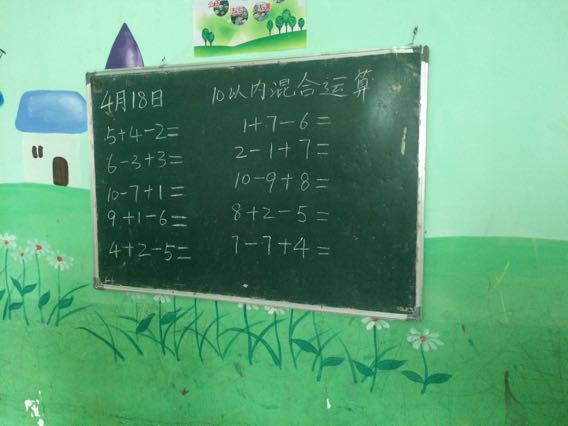 4月18日 10以内混合运算
5+4-2= 1+7-6=
6-3+3= 2-1+7=
10-7+1= 10-9+8=
9+1-6= 8+2-5=
4+2-5= 7-7+4=